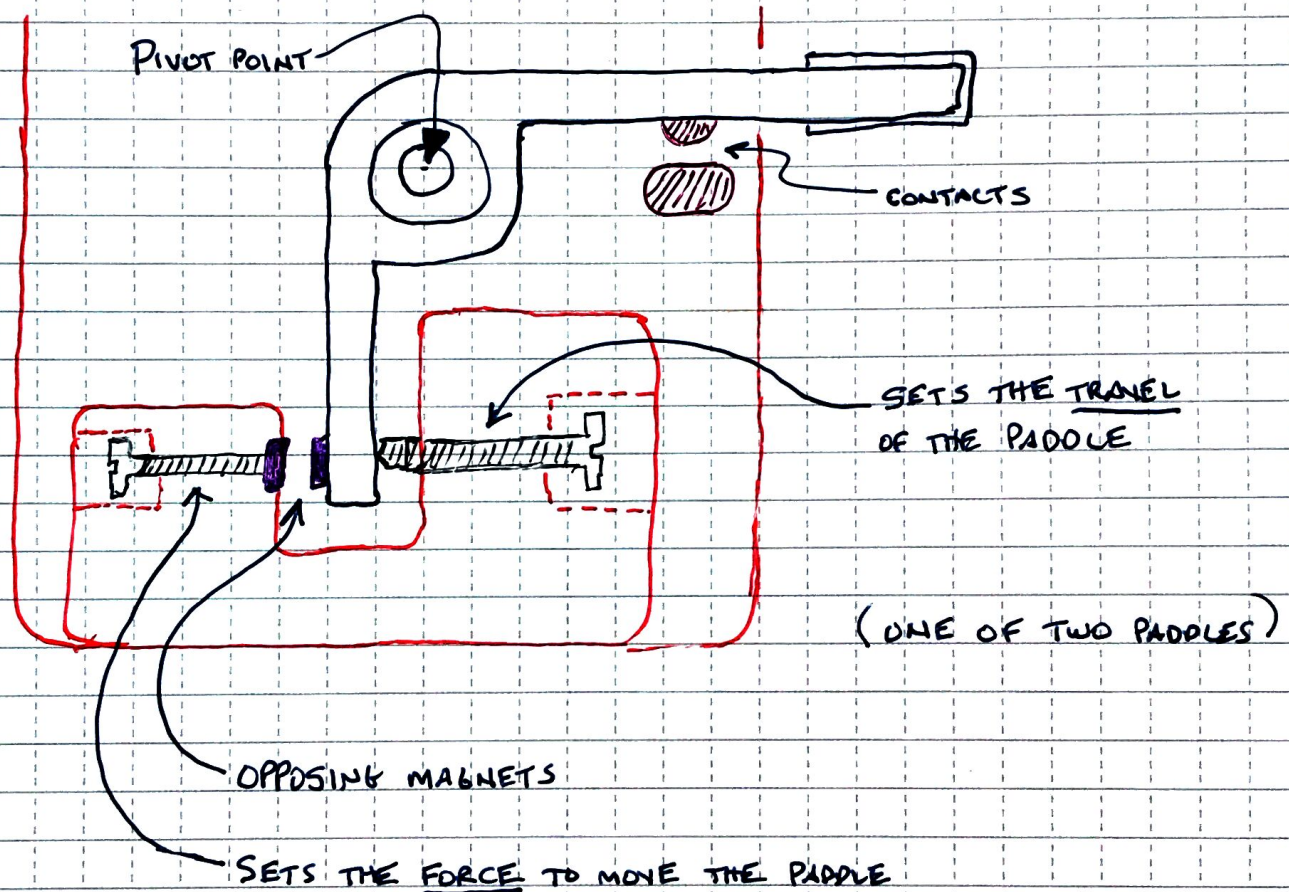 PIVOT POINT
CONTACTS
SETS THE TRAVEL
OF THE PADDLE
(ONE OF TWO PADDLES)
OPPOSING MAGNETS
SETS THE FORCE TO MOVE THE PADDLE